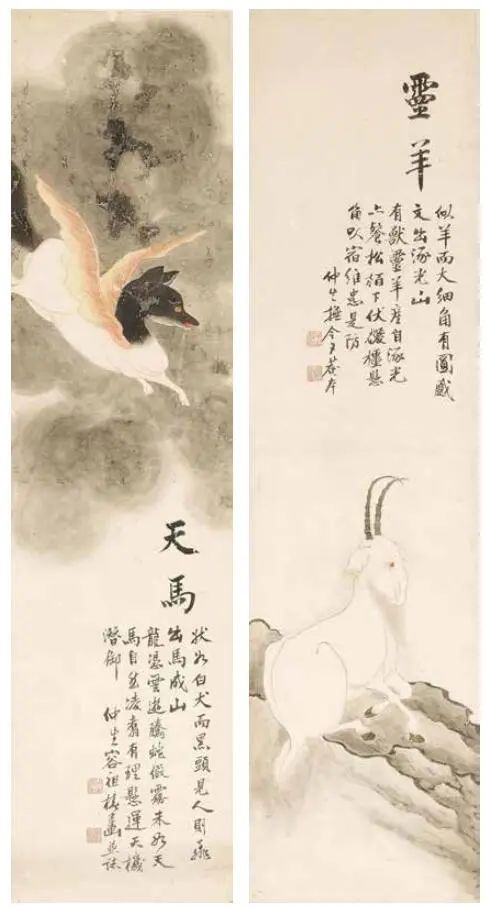 靈羊
似羊而大細角有圓蹙
文出涿光山
有獸靈羊產自涿光
松下伏懸
角以宿維患是防
仲生撫令本
天馬
狀如白犬而黑頭見人則飛
出馬成山
龍憑雲遊騰蛇假霧未若天
馬自然凌翥有理懸運天機
潛御
仲生容祖椿畫並誌